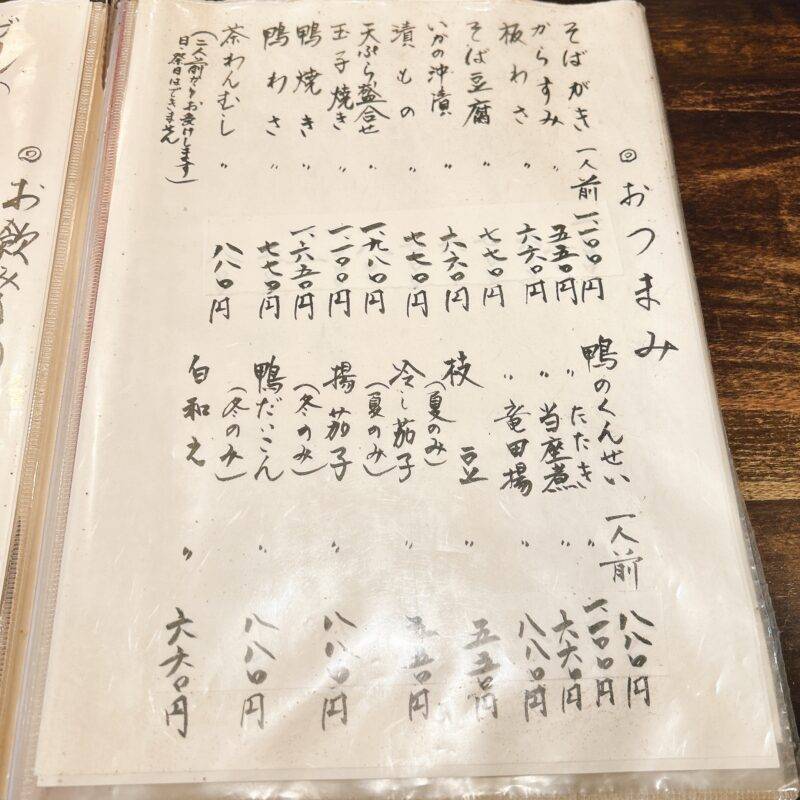 ◎おつまみ
そばがき 一人前 一、一〇〇円
からすみ 〃 五五〇円
板わさ 〃 六六〇円
そば豆腐 〃 七七〇円
いかの沖漬 〃 六六〇円
漬もの 〃 七七〇円
天ぷら盛合せ 〃 一、九八〇円
玉子焼き 〃 一、一〇〇円
鴨焼き 〃 一、六五〇円
鴨わさ 〃 七七〇円
茶わんむし 〃 八八〇円
(二人前からお受けします)
日・祭日はできません
鴨のくんせい 一人前 八八〇円
〃 たたき 〃 一、一〇〇円
〃 当座煮 〃 六六〇円
〃 竜田揚 〃 八八〇円
枝豆 〃 五五〇円
(夏のみ)
冷し茄子 〃 五五〇円
(夏のみ)
揚茄子 〃 八八〇円
(冬のみ)
鴨だいこん 〃 八八〇円
(冬のみ)
白和え 〃 六六〇円
◎お飲み